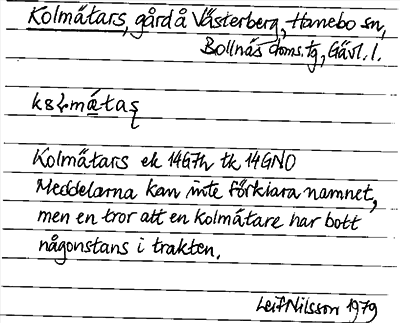 Kolmätars, gård å Västerberg, Hanebo sn,
Bollnäs doms.tg, Gävl. l.
Kolmätars ek 14G7h tk 14GNO
Meddelarna kan inte förklara namnet,
men en tror att en kolmätare har bott
någonstans i trakten.
Leif Nilsson 1979